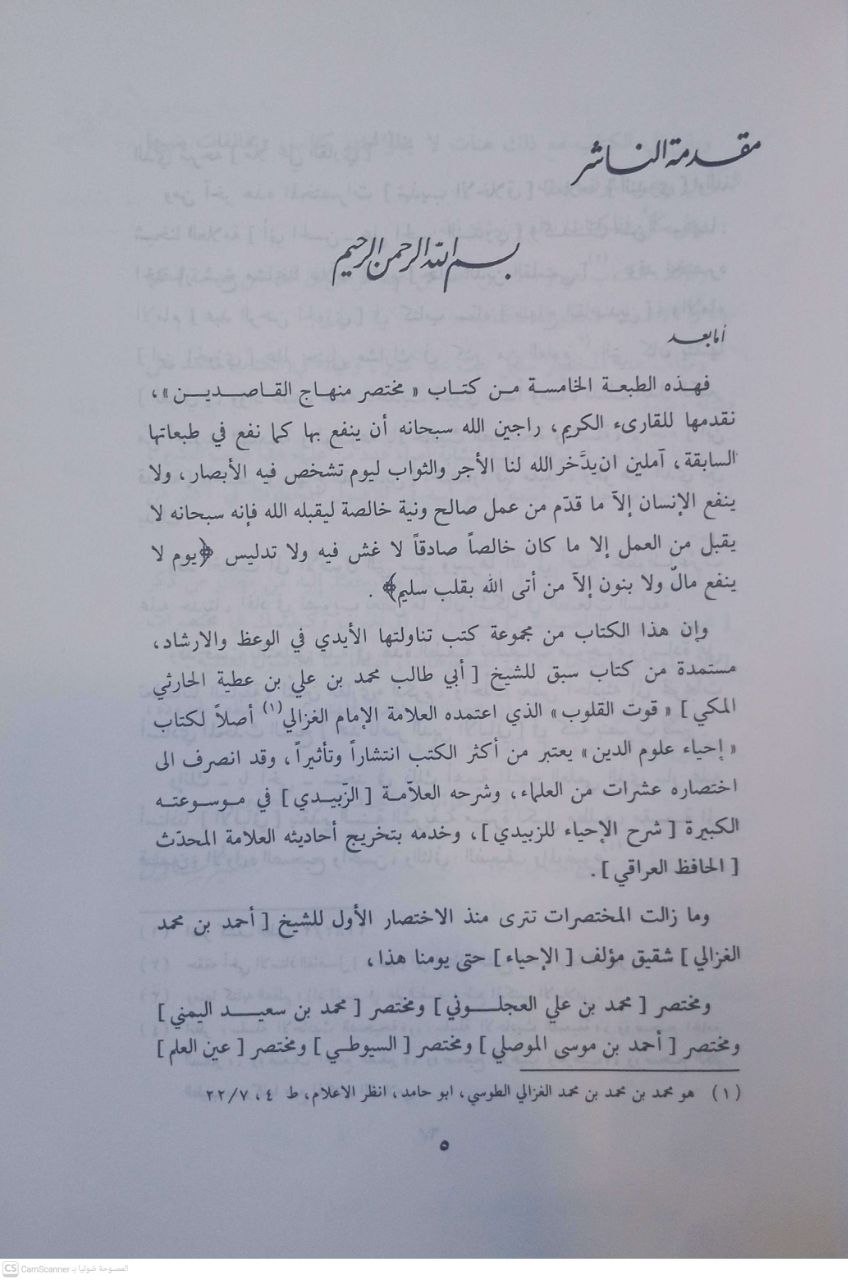 مقدمة الناشر
بسم الله الرحمن الرحيم
أما بعد
فهذه الطبعة الخامسة من كتاب « مختصر منهاج القاصدين » ،
نقدمها للقارىء الكريم، راجين الله سبحانه أن ينفع بها كما نفع في طبعاتها
السابقة، آملين ان يدَّخر الله لنا الأجر والثواب ليوم تشخص فيه الأبصار، ولا
ينفع الإنسان إلاّ ما قدّم من عمل صالح ونية خالصة ليقبله الله فإنه سبحانه لا
يقبل من العمل إلا ما كان خالصاً صادقاً لا غش فيه ولا تدليس ﴿يوم لا
ينفع مالٌ ولا بنون إلاّ من أتى الله بقلب سليم﴾ .
وإن هذا الكتاب من مجموعة كتب تناولتها الأيدي في الوعظ والارشاد،
مستمدة من كتاب سبق للشيخ [ أبي طالب محمد بن علي بن عطية الحارثي
المكي ] « قوت القلوب » الذي اعتمده العلامة الإمام الغزالي (١) أصلاً لكتاب
« إحياء علوم الدين » يعتبر من أكثر الكتب انتشاراً وتأثيراً، وقد انصرف الى
اختصاره عشرات من العلماء، وشرحه العلاّمة [ الزّبيدي ] في موسوعته
الكبيرة [ شرح الإحياء للزبيدي ]، وخدمه بتخريج أحاديثه العلامة المحدّث
[ الحافظ العراقي ] .
وما زالت المختصرات تترى منذ الاختصار الأول للشيخ [ أحمد بن محمد
الغزالي ] شقيق مؤلف [ الإحياء ] حتى يومنا هذا،
ومختصر [ محمد بن علي العجلوني ] ومختصر [ محمد بن سعيد اليمني ]
ومختصر [ أحمد بن موسى الموصلي ] ومختصر [ السيوطي ] ومختصر [ عين العلم ]
(١) هو محمد بن محمد بن محمد الغزالي الطوسي، ابو حامد، انظر الاعلام، ط ٤، ٢٢/٧
٥
CS CamScanner الممسوحة ضوئيا بـ